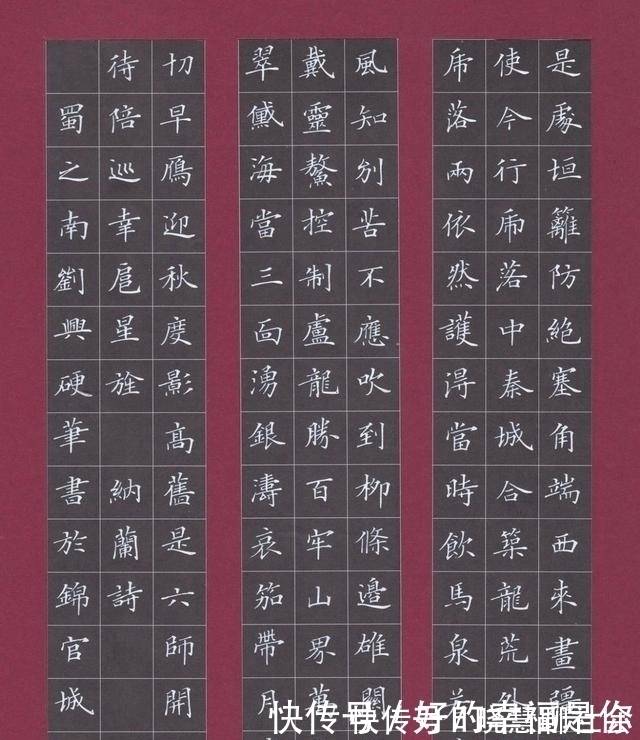 是處垣籬防絕塞角端西來畫疆
使今行乕落中秦城合築龍荒外
乕落兩依然護淂當時飲馬泉若
風知別苦不應吹到柳條邊雄關
戴靈鰲控制盧龍勝百牢山界萬
翠黛海當三面湧銀濤哀笳帶月
切早鴈迎秋度影高舊是六師開
待陪巡幸扈星旌 納蘭詩
蜀之南劉興硬筆書於錦官城
快传号